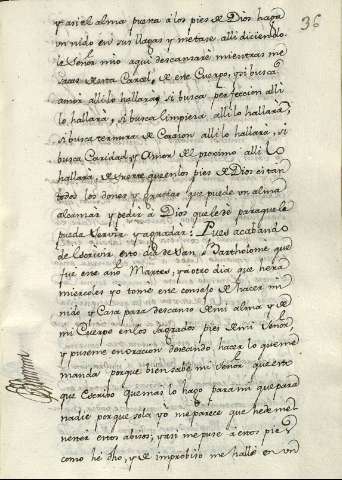 36
y asi el alma puesta â los pies de Dios haga
un nido en sus llagas y metase alli diciendo
le Señor mio aqui descansarè mientras me
sacas de esta Carcel de este Cuerpo, y si busca
amor alli lo hallara, si busca perfeccion alli
lo hallarà, si busca limpieza alli lo hallarà,
si busca ternura de Corazon alli lo hallarà, si
busca Caridad y Amor del proximo alli lo
hallarà, de suerte que en los pies de Dios estan
todos los dones y gracias que puede un alma
alcanzar y pedir â Dios que le dè para que le
pueda servir y agradar: Pues acabando
de escrivir esto dia de San Bartholome, que
fue este año Martes, y a otro dia que hera
miercoles yo tome este consejo de hacer mi
nido y Casa para descanso de mi alma y de
mi Cuerpo en los sagrados pies de mi Señor
y puseme en oracion deseando hacer lo que me
manda porque bien sabe mi Señor que esto
que Escribo que mas lo hago para mi que para
nadie porque sola yo me parece que he de me
nester estos abisos; y asi me puse â estos pies
como he dho, y de improbiso me hallè en un